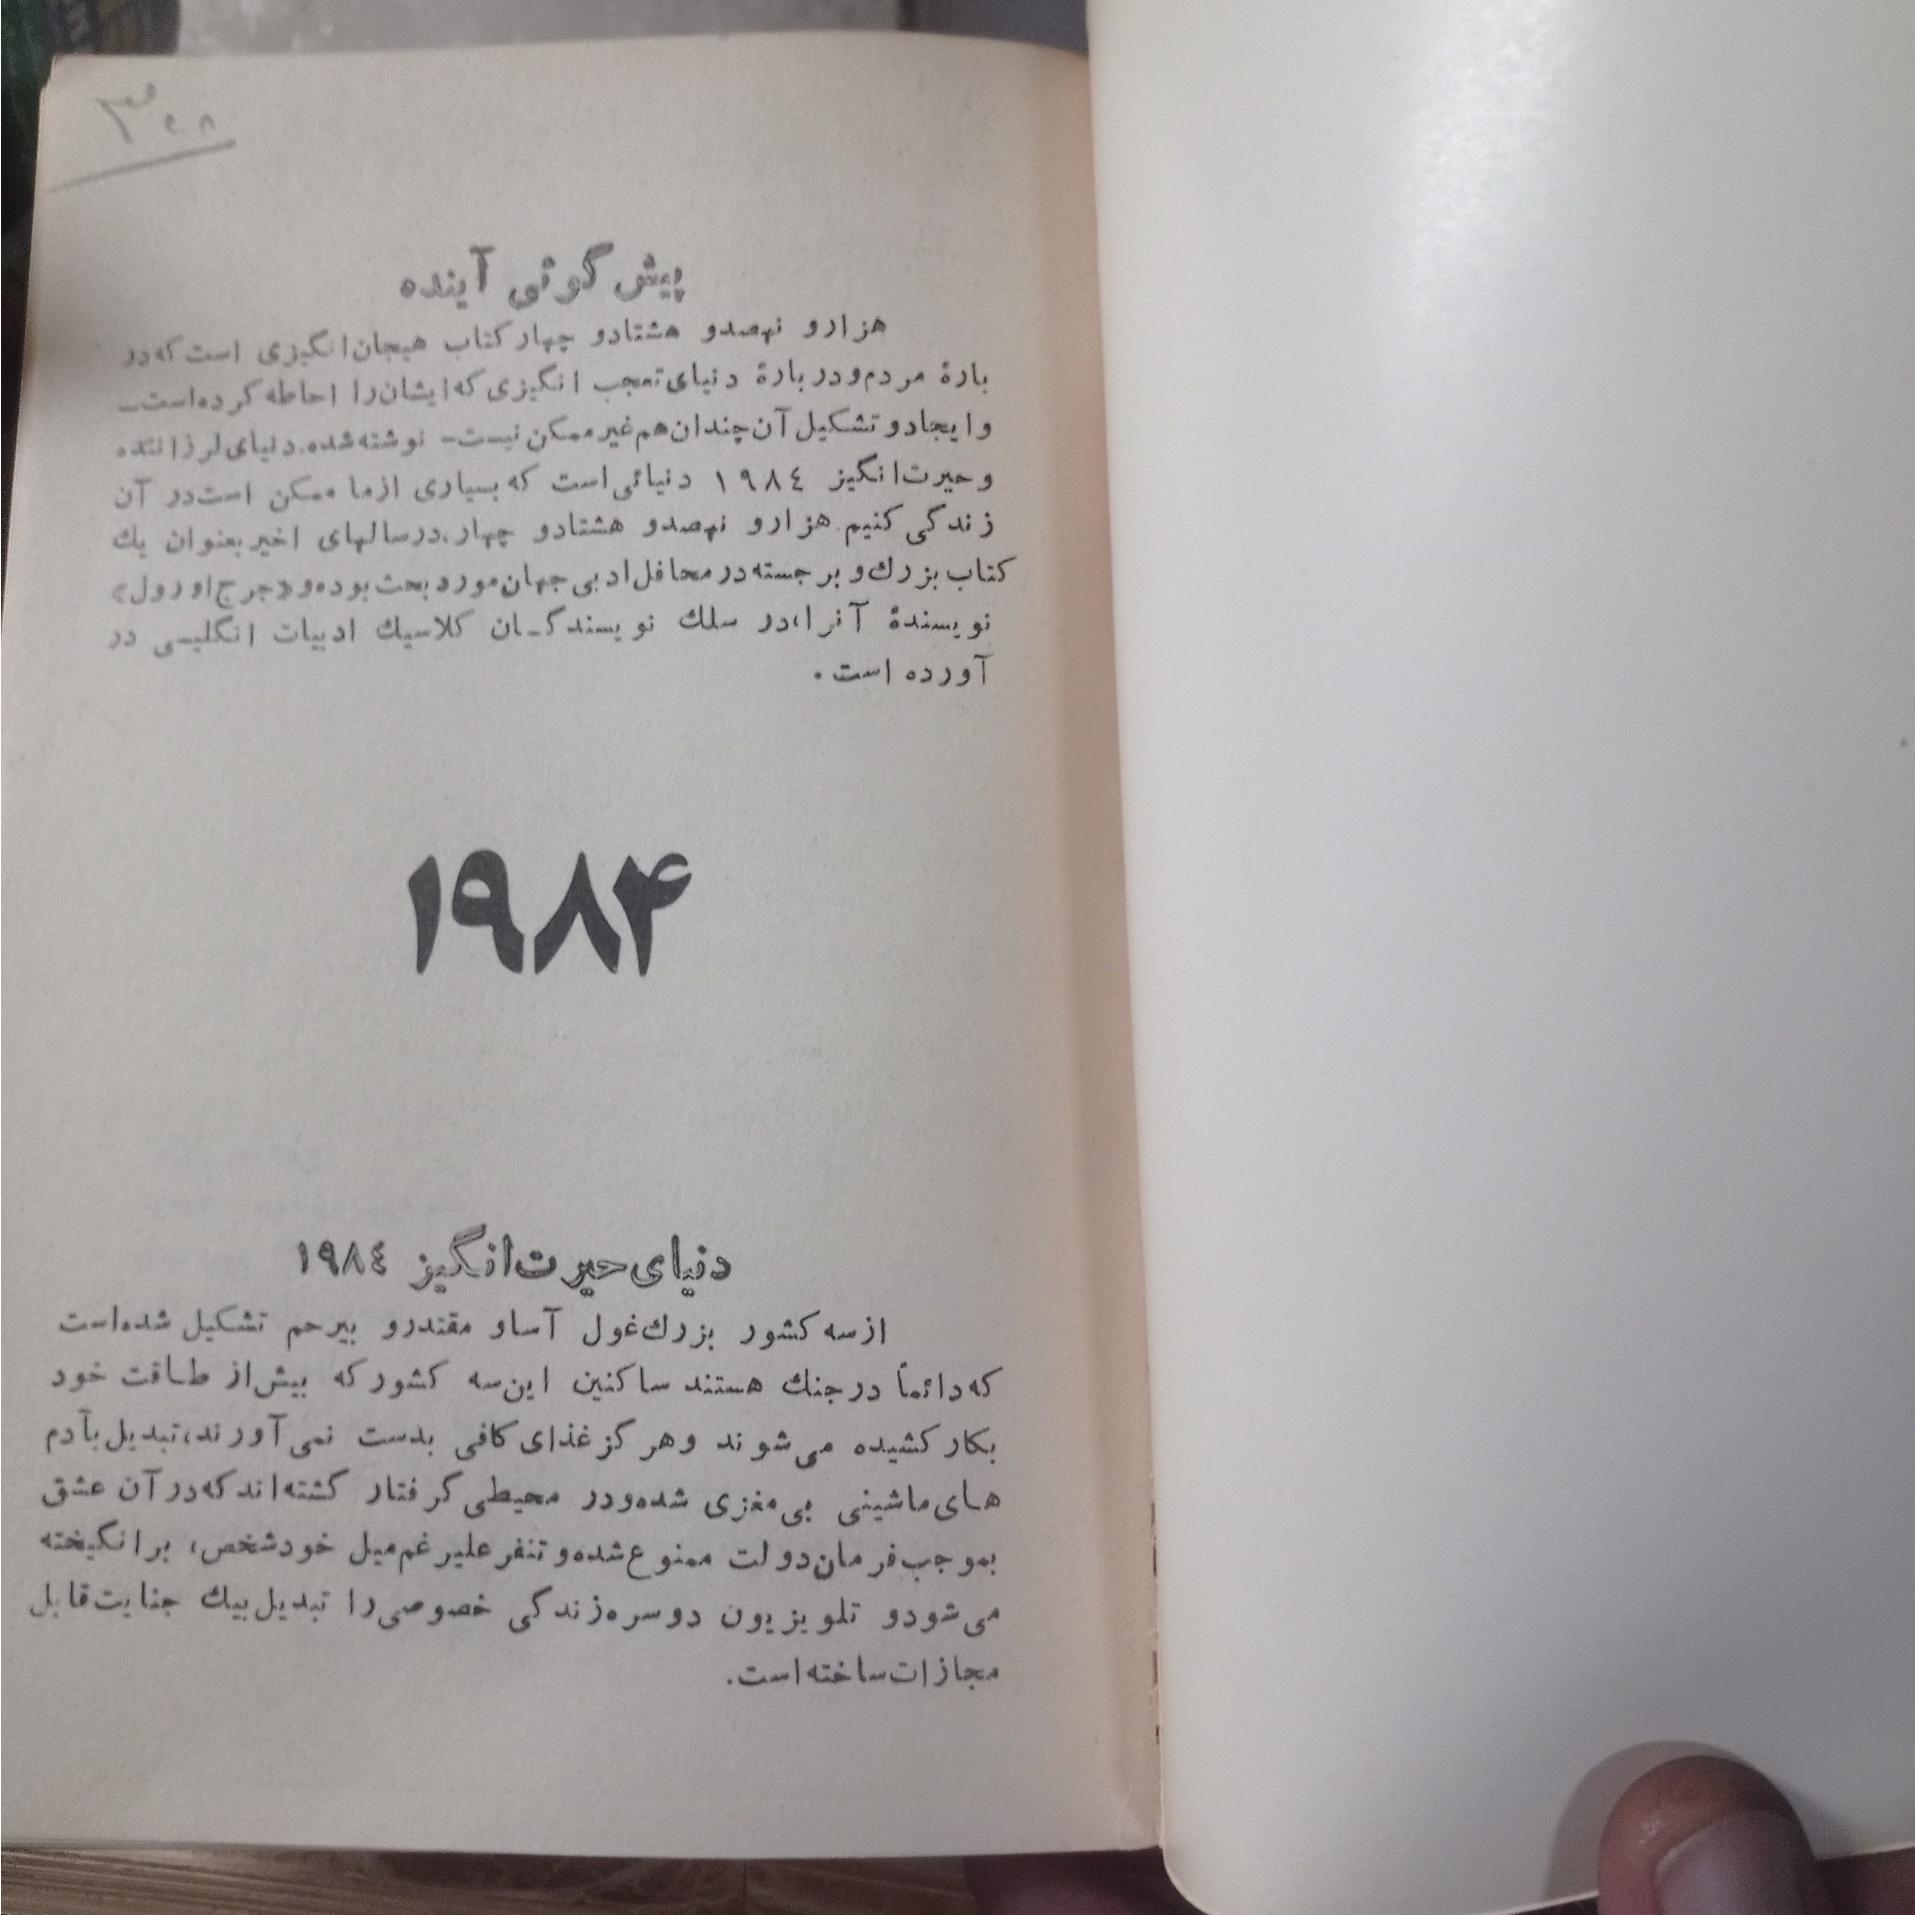 پیش گوئی آینده
هزارو نهصدو هشتادو چهار کتاب هیجان‌انگیزی است که‌در
بارهٔ مردم‌و در بارهٔ دنیای تعجب انگیزی که‌ایشان‌را احاطه کرده‌است_
و ایجادو تشکیل آن چندان‌هم غیر ممکن نیست- نوشته‌شده. دنیای لرزاننده
و حیرت‌انگیز ١٩٨٤ دنیائی است که بسیاری ازما ممکن است‌در آن
زندگی کنیم. هزارو نهصدو هشتادو چهار، درسالهای اخیر بعنوان یك
کتاب بزرك‌و برجسته‌در محافل‌ادبی جهان‌مورد بحث بوده‌و «جرج اورول»
نویسندهٔ آنرا، در سلك نویسندگـان کلاسیك ادبیات انگلیسی در
آورده است .
۱۹۸۴
دنیای حیرت‌انگیز ١٩٨٤
ازسه کشور بزرك‌غول آساو مقتدرو بیرحم تشکیل شده‌است
که‌دائماً درجنك هستند ساکنین این‌سه کشورکه بیش‌از طـاقت خود
بکار کشیده می‌شوند وهرگز غذای کافی بدست نمی‌آورند، تبدیل بآدم
هـای‌ماشینی بی‌مغزی شده‌ودر محیطی گرفتار گشته‌اند که‌درآن عشق
بموجب‌فرمان‌دولت ممنوع‌شده‌و تنفر علیرغم‌میل خودشخص، برانگیخته
می‌شودو تلویزیون دوسره‌زندگی خصوصی‌را تبدیل‌بیك جنایت‌قابل
مجازات‌ساخته‌است.